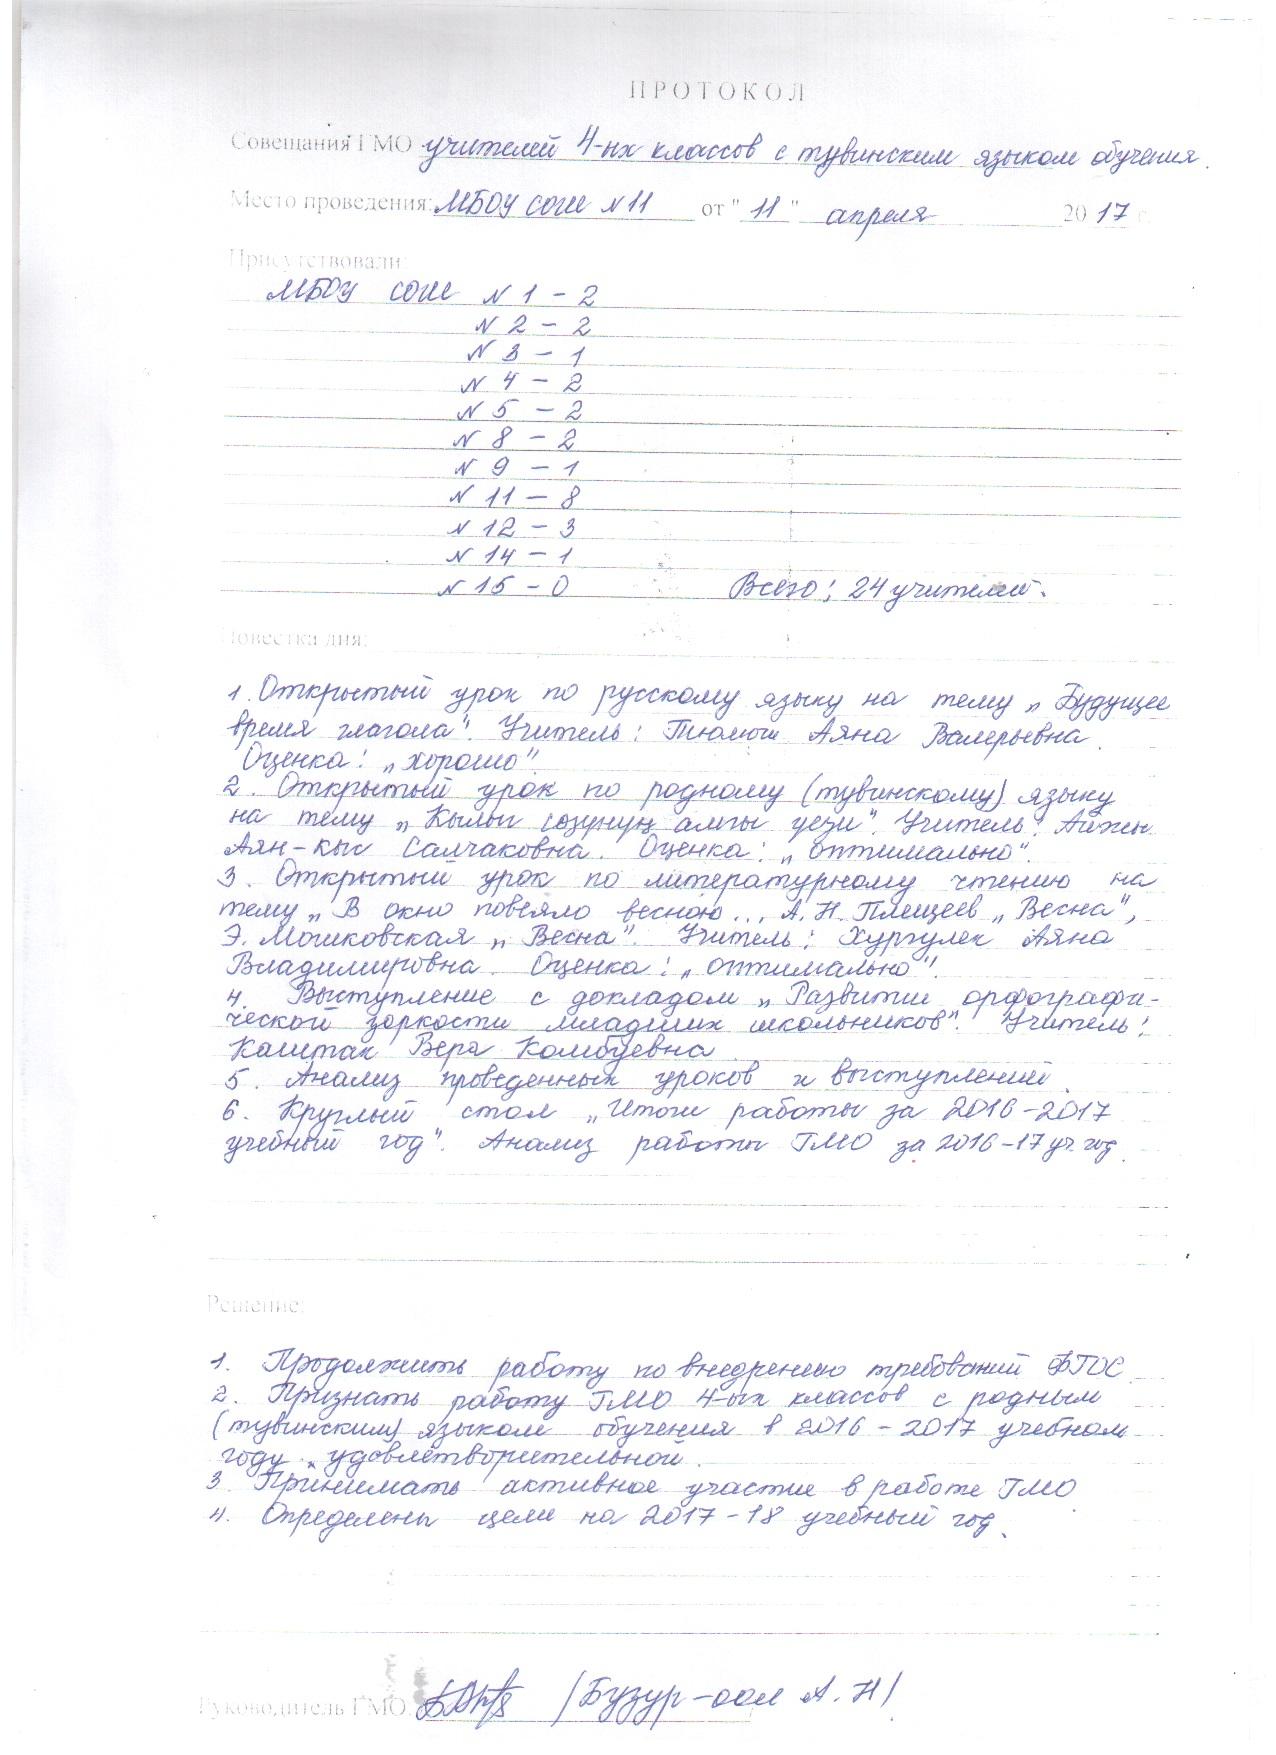 ПРОТОКОЛ
Совещания ГМО учителей 4-ых классов с тувинским языком обучения.
Место проведения: МБОУ СОШ №11 от "11" апреля 2017 г.
Присутствовали:
МБОУ СОШ № 1 – 2
№ 2 – 2
№ 3 – 1
№ 4 – 2
№ 5 – 2
№ 8 – 2
№ 9 – 1
№ 11 – 8
№ 12 – 3
№ 14 – 1
№ 15 – 0 Всего: 24 учителей.
Повестка дня:
1. Открытый урок по русскому языку на тему „Будущее
время глагола". Учитель: Тюлюш Аяна Валерьевна.
Оценка: „хорошо".
2. Открытый урок по родному (тувинскому) языку
на тему „Кылыг сөзүнүң амгы үези". Учитель: Айжы
Аян-кыс Салчаковна. Оценка: „оптимально".
3. Открытый урок по литературному чтению на
тему „В окно повеяло весною... А.Н. Плещеев „Весна",
Э. Мошковская „Весна". Учитель: Хургулек Аяна
Владимировна. Оценка: „оптимально".
4. Выступление с докладом „Развитие орфографи-
ческой зоркости младших школьников". Учитель:
Каштак Вера Комбуевна.
5. Анализ проведенных уроков и выступлений.
6. Круглый стол „Итоги работы за 2016-2017
учебный год". Анализ работы ГМО за 2016-17 уч. год.
Решение:
1. Продолжить работу по внедрению требований ФГОС.
2. Признать работу ГМО 4-ых классов с родным
(тувинским) языком обучения в 2016 – 2017 учебном
году „удовлетворительной.
3. Принимать активное участие в работе ГМО
4. Определены цели на 2017-18 учебный год.
Руководитель ГМО: /Бузур-оол А.Н/